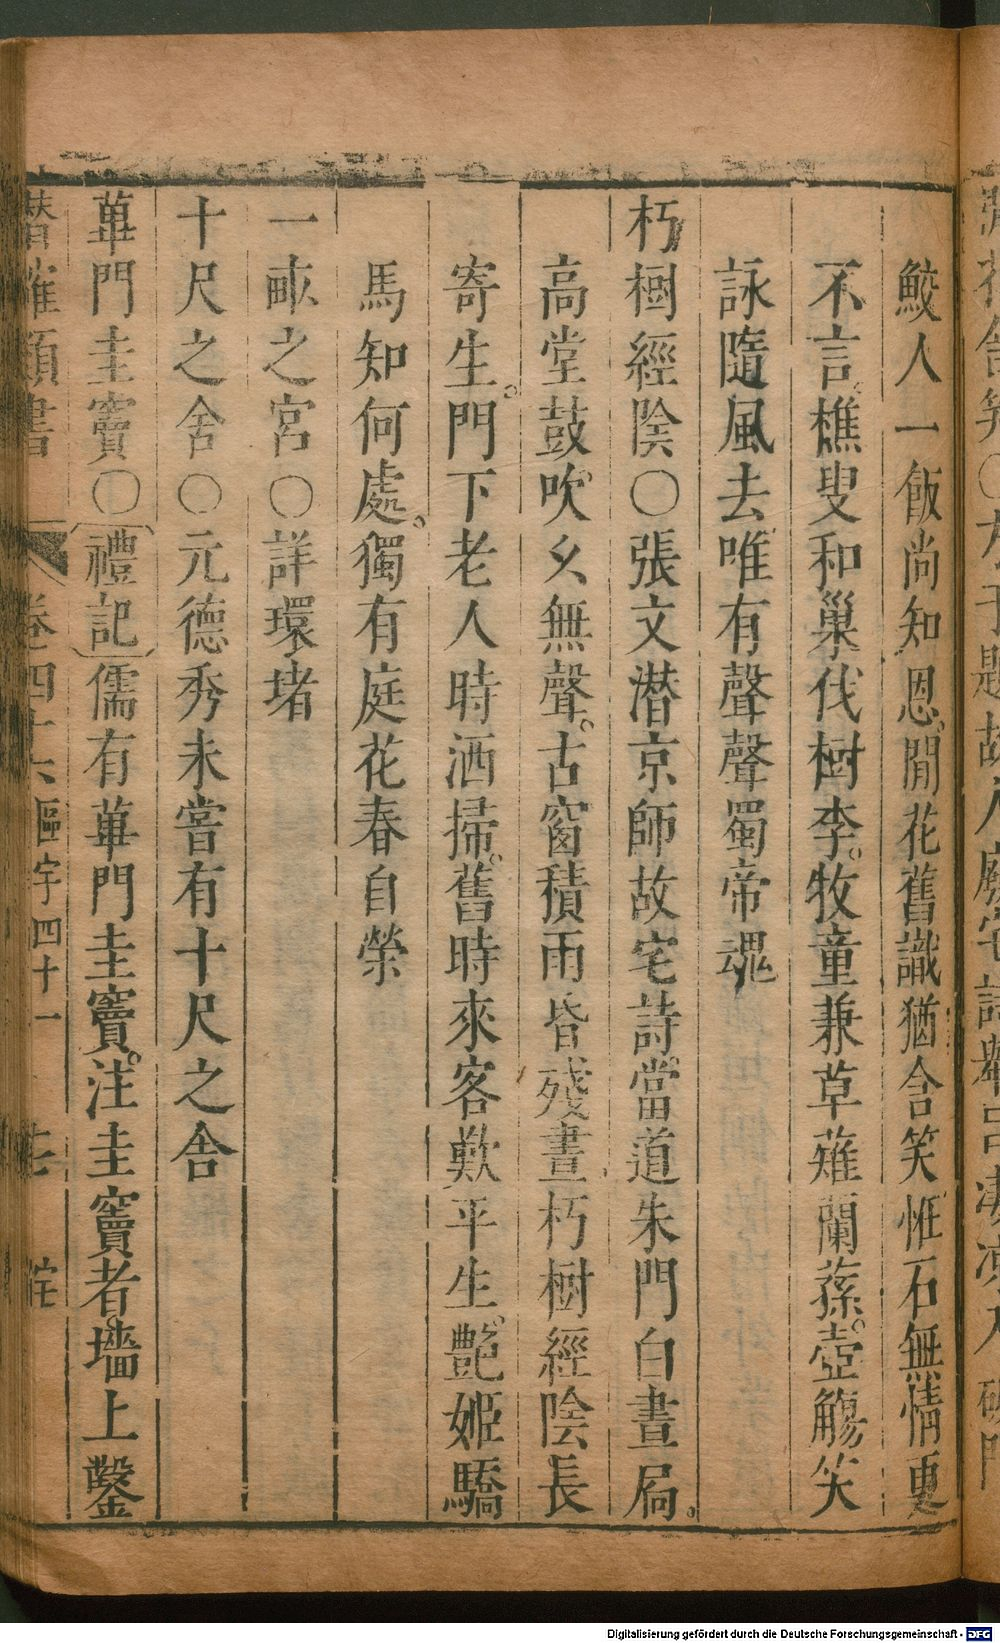 鮫人一飯尚知恩閒花舊識猶含笑惟石無情更
不言樵叟和巢伐樹李牧童兼草薙蘭蓀壺觴笑
詠隨風去唯有聲聲蜀帝魂
朽樹經陰○張文潛京師故宅詩當道朱門白晝扃
高堂鼓吹久無聲古窗積雨昏殘畫朽樹經陰長
寄生門下老人時洒掃舊時來客歎平生艷姬驕
馬知何處獨有庭花春自榮
一畝之宮○詳環堵
十尺之舍○元德秀未嘗有十尺之舍
蓽門圭竇○禮記儒有蓽門圭竇注圭竇者墻上鑿
潛確類書 卷四十六區宇四十一 宅
Digitalisierung gefördert durch die Deutsche Forschungsgemeinschaft - DFG